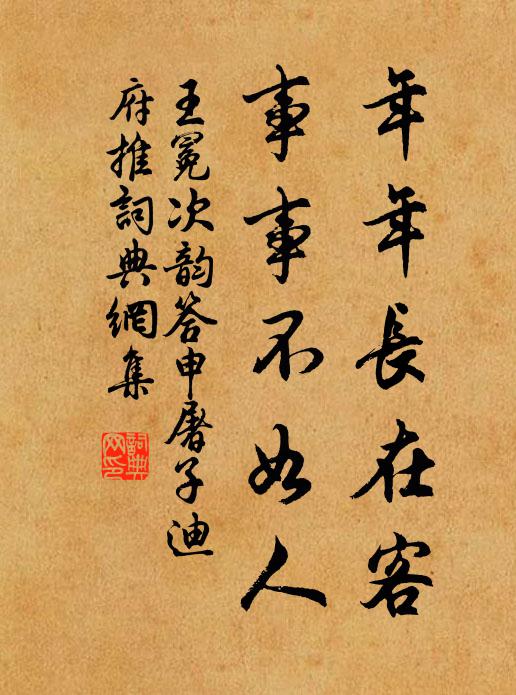 年年長在客
事事不如人
王冕次韵答申屠子迪
府推詞典網集
詞典
网印